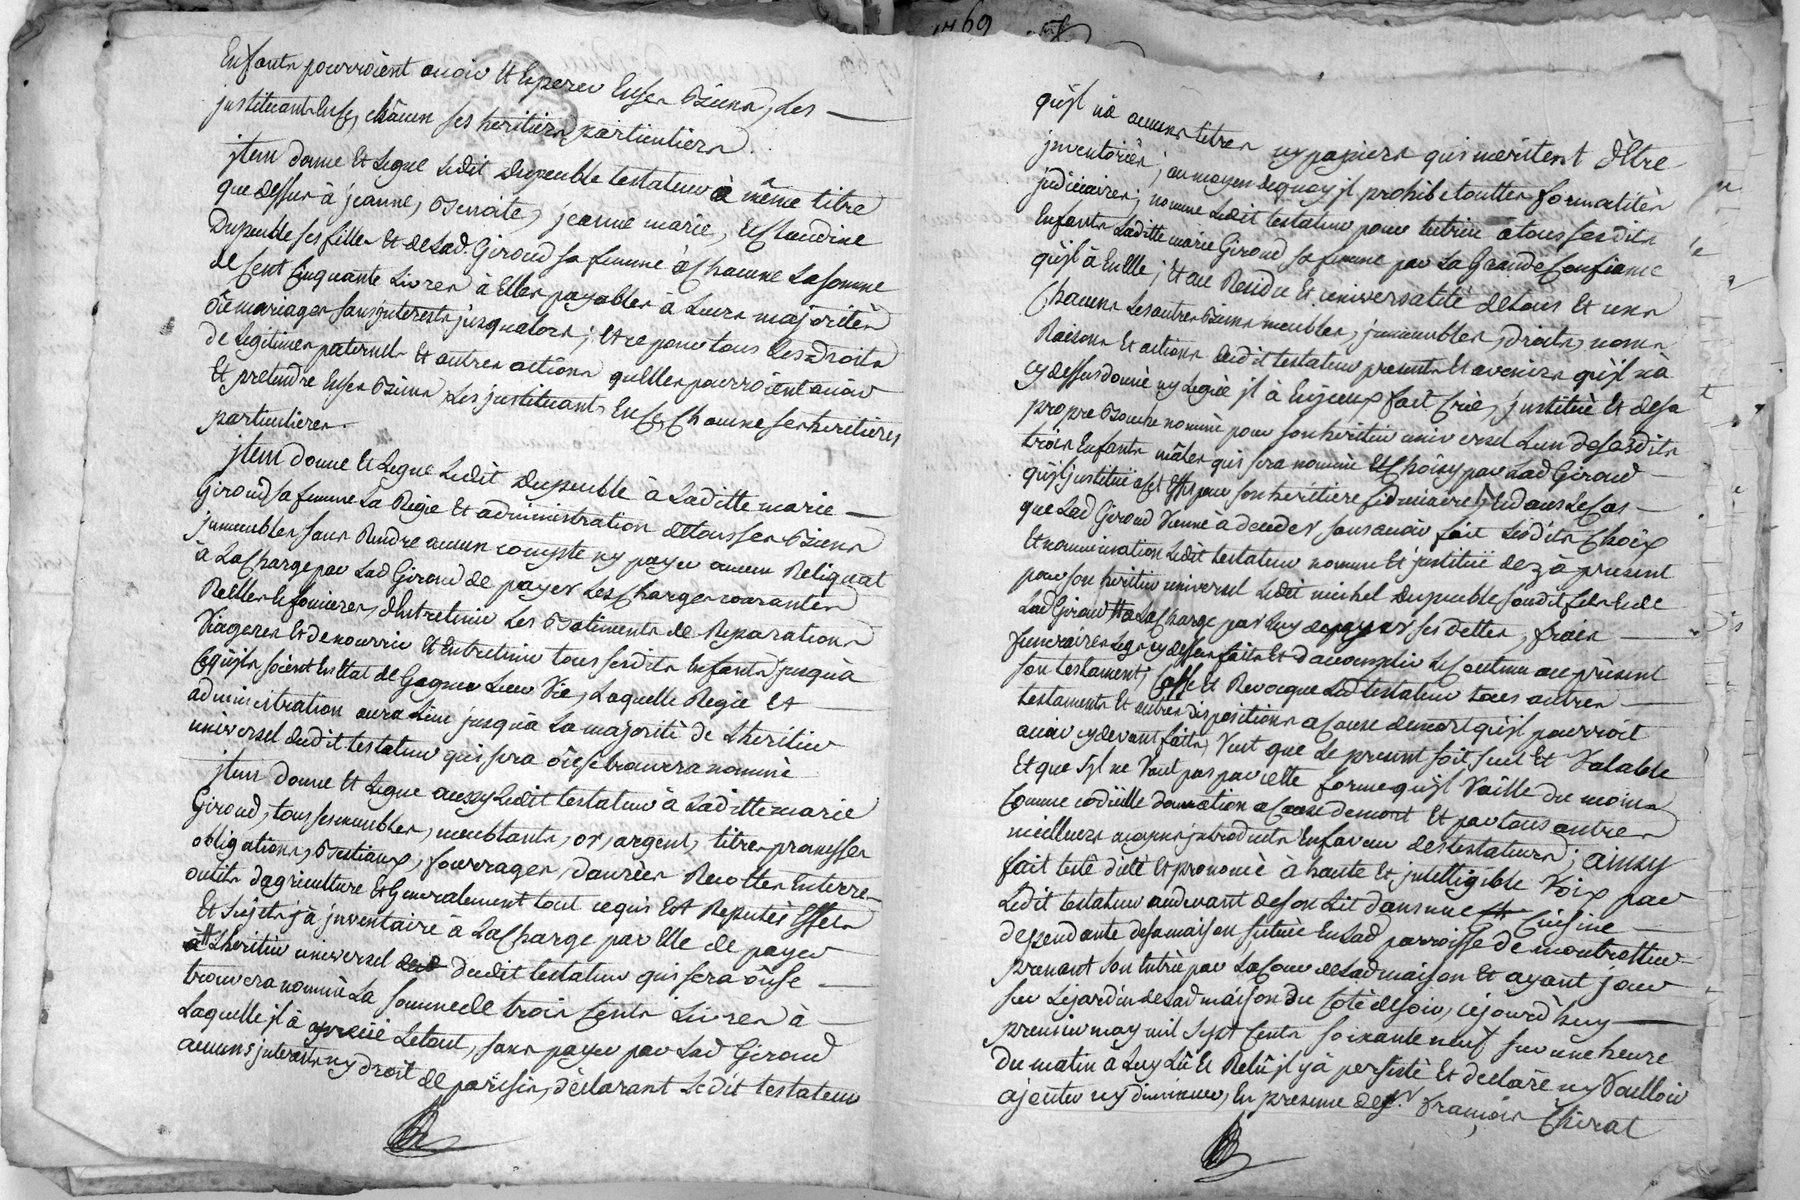 Enfants pourroient avoir et Esperer En ses Biens, Les
jnstituant En ce, châcun ses heritiers particuliers.
jtem donne et Legue Ledit Dupeuble testateur à même titre
que dessus à jeanne, Benoite, jeanne marie, et Claudine
Dupeuble ses filles et de Lad. Giroud sa femme à Chacune La somme
de Cent Cinquante Livres à Elles payables à Leurs majorités
ôu mariages sans jnterests jusqualors; et ce pour tous Les droits
de Legitimes paternels et autres actions quelles pourroient avoir
Et pretendre En ses Biens, Les jnstituants En Ce, Chacune ses heritieres
particulieres.
jtem donne et Legue Ledit Dupeuble à Laditte marie
Giroud sa femme La Regie et administration de tous ses Biens
jmmeubles sans Rendre aucun compte ny payer aucun Reliquat
à La Charge par Lad Giroud de payer Les Charges courantes
Réelles et foncieres, d'Entretenir Les Batiments de Reparations
Viageres Et de nourrir et Entretenir tous sesdits Enfants jusquà
Cequ'jls soient En Etat de Gagner Leur Vie, Laquelle Regie et
administration aura Lieu jusquà La majorité de Lheritier
universel dudit testateur qui sera ôu se trouvera nommé
jtem donne et Legue aussy Ledit testateur à Laditte marie
Giroud, tous ses meubles, meublants, or, argent, titres promesses
obligations, Bestiaux, fourrages, danrées Recoltes Enterre
outils dagriculture et Generalement tout ce qui Est Reputés Effets
Et Sujets jà jnventaire à La Charge par Elle de payer
à Lheritier universel dudit testateur qui sera ôu se
trouvera nommé La somme de trois Cents Livres à
Laquelle jl à aprecié Le tout, sans payer par Lad Giroud
aucuns jnterests ny droit de parisis, declarant Ledit testateur
1769
qu'jl nà aucuns titres ny papiers qui meritent d'Etre
jnventoriés; au moyen dequoy jl prohibe touttes formalités
judiciaires; nomme Ledit testateur pour tutrice à tous sesdits
Enfants Laditte marie Giroud sa femme par La Grande Confiance
qu'jl à En Elle; et au Residu et universalité de tous et uns
Chacuns Les autres Biens meubles, jmmeubles, droits, noms
Raisons Et actions dudit testateur presents Et avenirs qu'jl nà
cy dessus donné ny Legué jl à fait Crée, jnstitué et de sa
propre Bouche nommé pour son heritier universel Lun de sesdits
trois Enfants mâles qui sera nommé et Choisy par Lad Giroud
qu'jl jnstitue à cet Effet pour son heritiere fiduciaire, Et dans Le Cas
que Lad Giroud Vienne à deceder sans avoir fait Lesdits Choix
Et nommination Ledit testateur nomme et jnstitue dez à present
pour son heritier universel Ledit michel Dupeuble sondit fils et de
Lad Giroud à La Charge par Luy de payer ses dettes, fraix
funeraires Legs cy dessus faits Et d'accomplir Le contenu au présent
son testament, Casse et Revocque Led testateur tous autres
testaments Et autres dispositions a Cause de mort qu'jl pourroit
avoir cy devant faits, Veut que Le present soit seul et Valable
Et que s'jl ne Vaut pas par cette forme qu'jl Vaille du moins
Comme codicille donnation a Cause de mort et par tous autres
meilleurs moyens jntroduits En faveur des testateurs; ainsy
fait testé dicté Et prononcé à haute et jntelligible Voix par
Ledit testateur au devant de son Lit dans une Cuisine
dependante de sa maison située En Lad parroisse de montrottier
prenant son Entrée par La Cour de Lad maison Et ayant jour
sur Le jardin de Lad maison du Coté de soir, cejourd'huy
premier may mil sept Cents soixante neuf sur une heure
du matin à Luy Lû et Relû jl y à persisté Et declaré ny Vouloir
ajouter ny diminuer, En presence de sr. françois Cherat